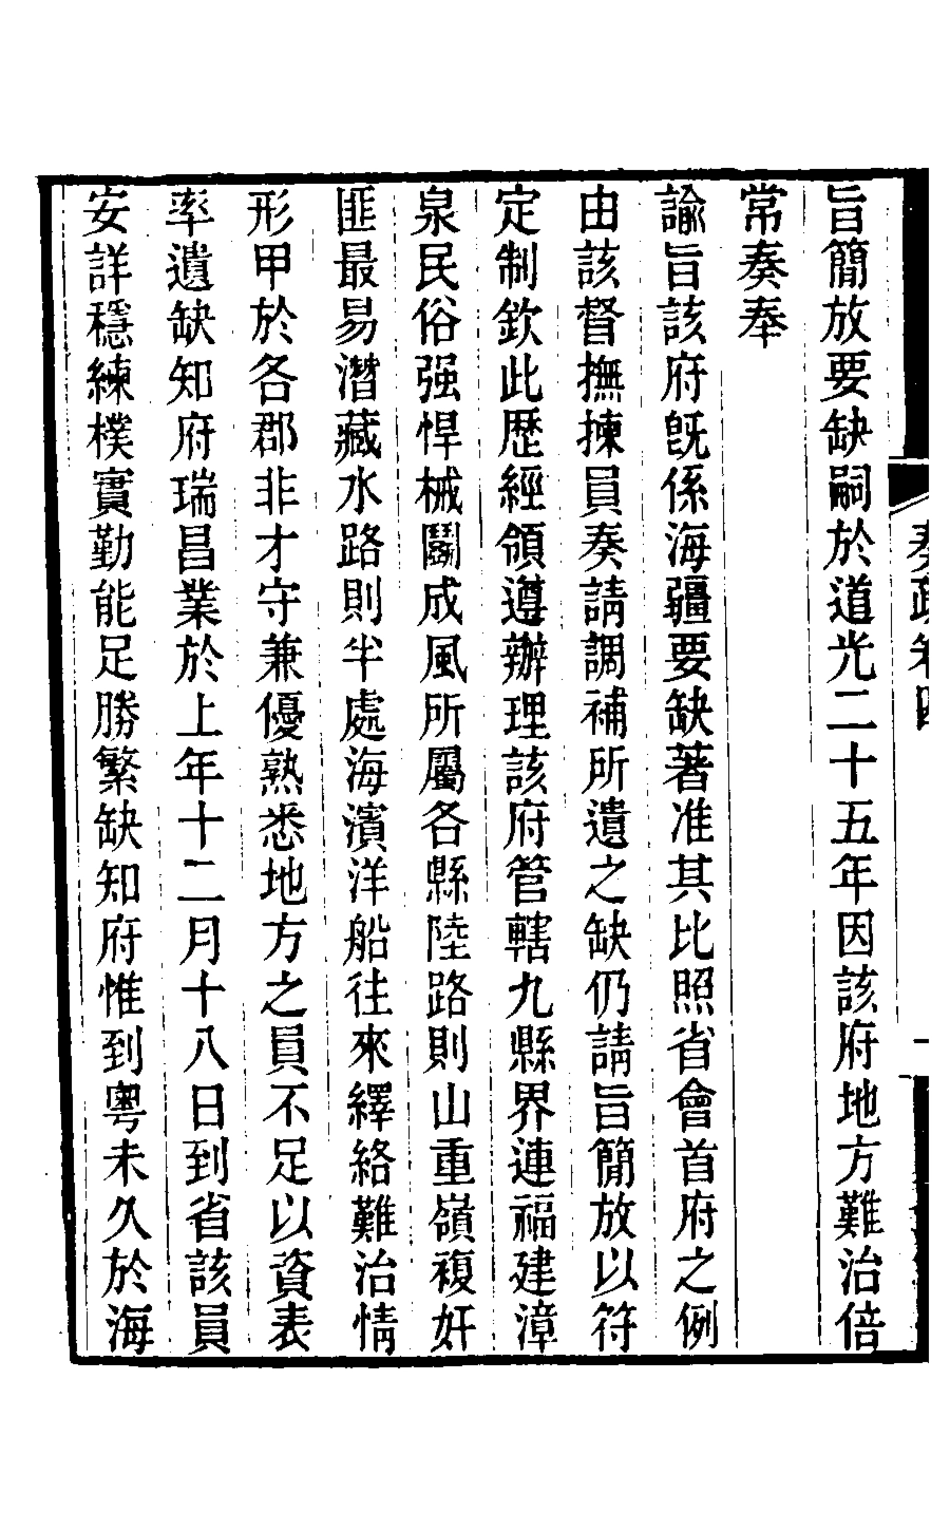 奏疏卷四
旨簡放要缺嗣於道光二十五年因該府地方難治倍
常奏奉
諭旨該府旣係海疆要缺著准其比照省會首府之例
由該督撫揀員奏請調補所遺之缺仍請旨簡放以符
定制欽此歷經領遵辦理該府管轄九縣界連福建漳
泉民俗强悍械鬭成風所屬各縣陸路則山重嶺複奸
匪最易潛藏水路則半處海濱洋船往來繹絡難治情
形甲於各郡非才守兼優熟悉地方之員不足以資表
率遺缺知府瑞昌業於上年十二月十八日到省該員
安詳穩練樸實勤能足勝繁缺知府惟到粵未久於海